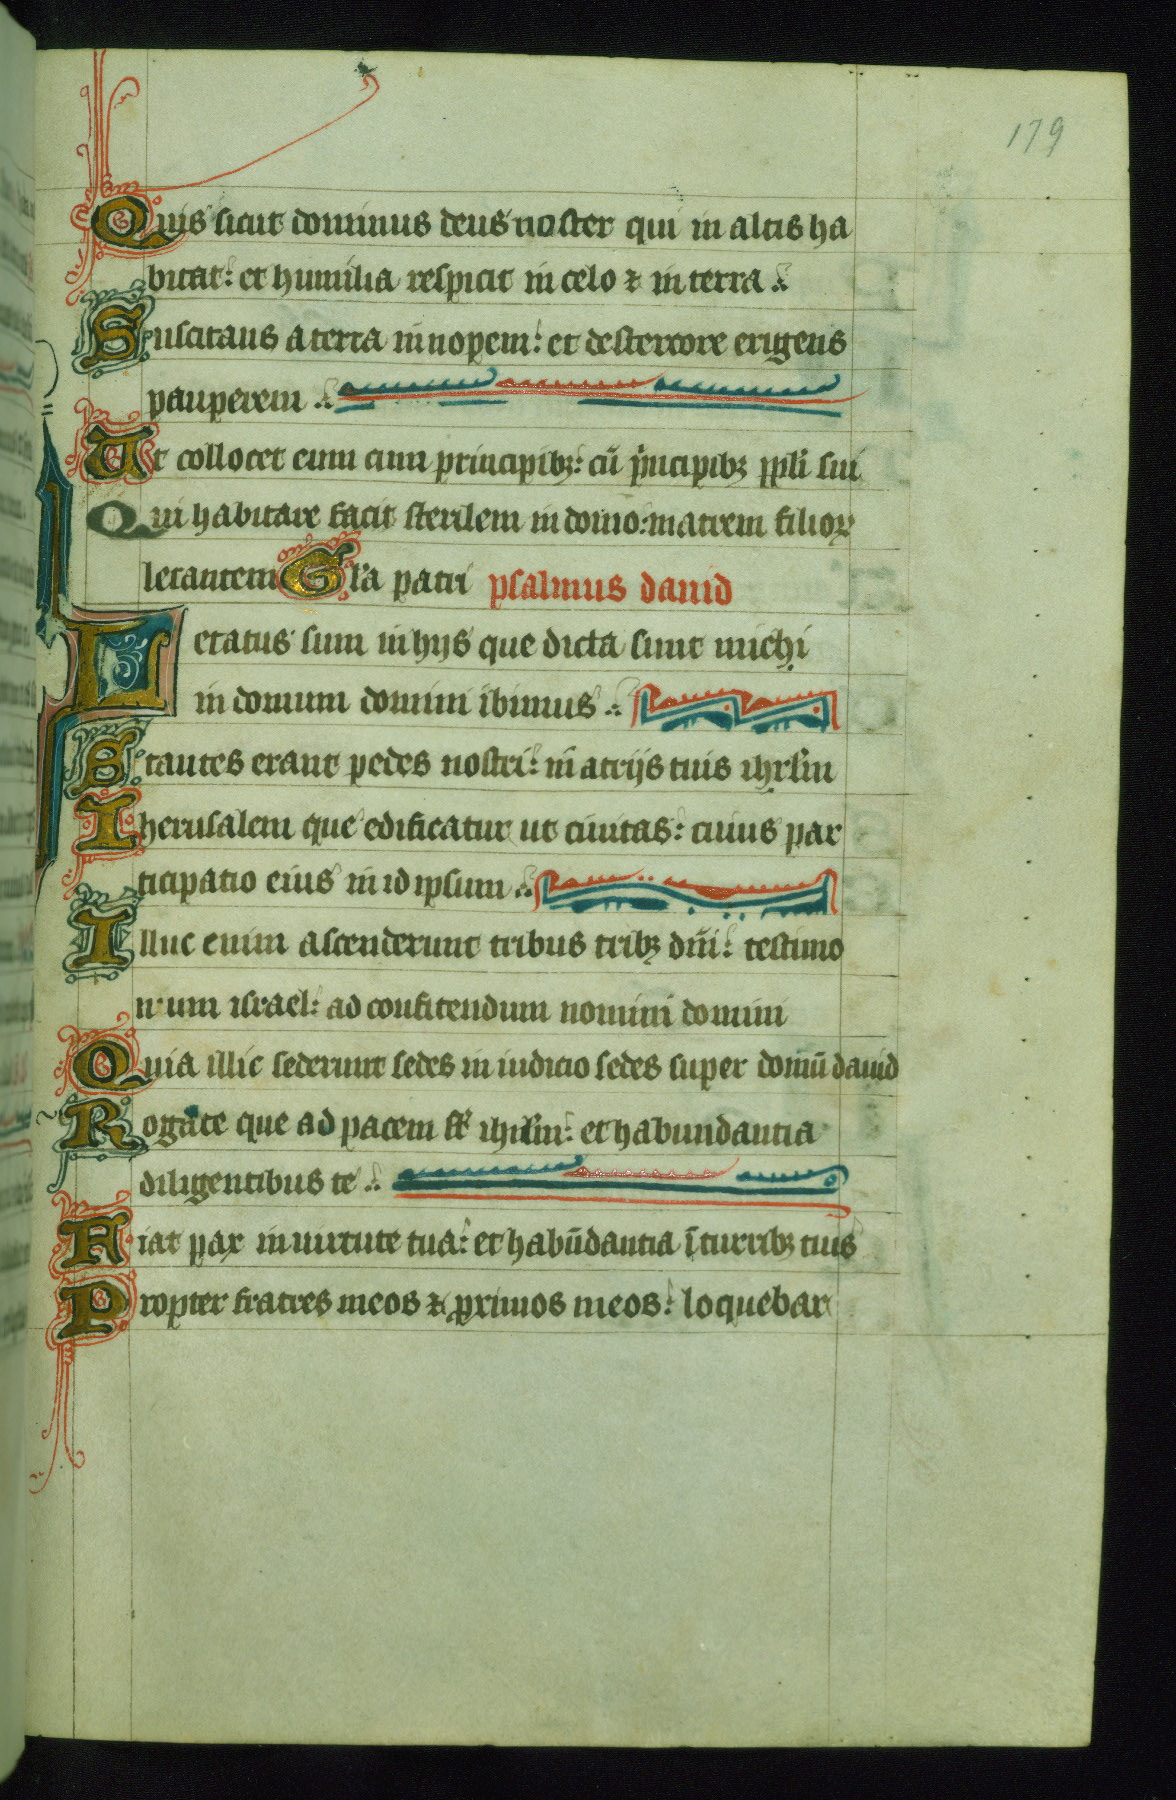 179
Quis sicut dominus deus noster qui in altis ha
bitat: et humilia respicit in celo ⁊ in terra
Suscitans a terra in nopem: et de stercore erigens
pauperem
Ut collocet eum cum principibꝫ: cū p̲incipibꝫ ppl̄i sui
Qui habitare facit sterilem in domo: matrem filioꝝ
letantem Gl̄a patri psalmus dauid
Letatus sum in hijs que dicta sunt michi
in domum domini ibimus
Stantes erant pedes nostri: in atrijs tuis ihrl̄m
Iherusalem que edificatur ut ciuitas: cuius par
ticipatio eius in id ipsum
Illuc enim ascenderunt tribus tribꝫ dn̄i: testimo
nium israel: ad confitendum nomini domini
Quia illic sederunt sedes in iudicio sedes super domū dauid
Rogate que ad pacem st̄ ihrl̄m: et habundantia
diligentibus te
Fiat pax in uirtute tua: et habūdantia ī turribꝫ tuis
Propter fratres meos ⁊ ꝓximos meos: loquebar